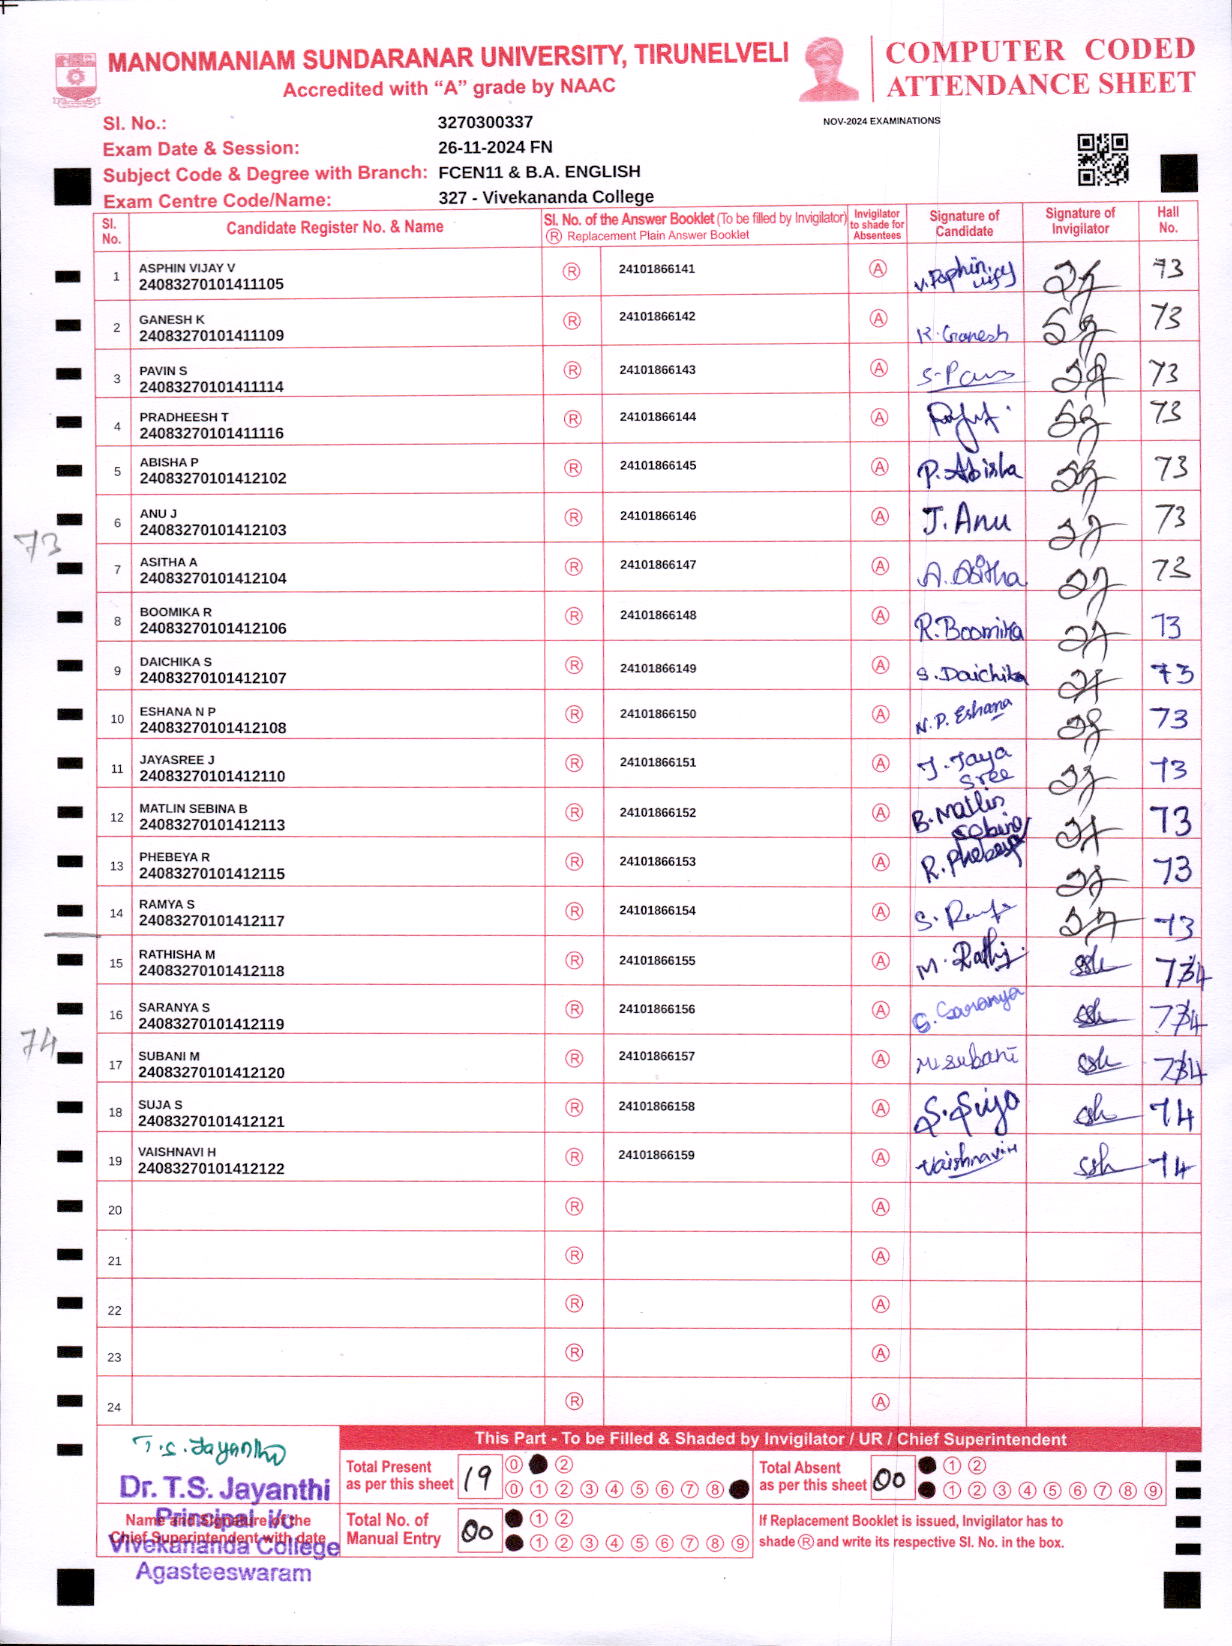 MANONMANIAM SUNDARANAR UNIVERSITY, TIRUNELVELI
Accredited with “A” grade by NAAC
COMPUTER CODED
ATTENDANCE SHEET
NOV-2024 EXAMINATIONS
Sl. No.: 3270300337
Exam Date & Session: 26-11-2024 FN
Subject Code & Degree with Branch: FCEN11 & B.A. ENGLISH
Exam Centre Code/Name: 327 - Vivekananda College
Sl. No. Candidate Register No. & Name Sl. No. of the Answer Booklet (To be filled by Invigilator) Ⓡ Replacement Plain Answer Booklet Invigilator to shade for Absentees Signature of Candidate Signature of Invigilator Hall No.
1 ASPHIN VIJAY V 24083270101411105 Ⓡ 24101866141 Ⓐ 73
2 GANESH K 24083270101411109 Ⓡ 24101866142 Ⓐ K. Ganesh 73
3 PAVIN S 24083270101411114 Ⓡ 24101866143 Ⓐ 73
4 PRADHEESH T 24083270101411116 Ⓡ 24101866144 Ⓐ 73
5 ABISHA P 24083270101412102 Ⓡ 24101866145 Ⓐ P. Abisha 73
6 ANU J 24083270101412103 Ⓡ 24101866146 Ⓐ J. Anu 73
73
7 ASITHA A 24083270101412104 Ⓡ 24101866147 Ⓐ A. Asitha 73
8 BOOMIKA R 24083270101412106 Ⓡ 24101866148 Ⓐ R. Boomika 73
9 DAICHIKA S 24083270101412107 Ⓡ 24101866149 Ⓐ S. Daichika 73
10 ESHANA N P 24083270101412108 Ⓡ 24101866150 Ⓐ N.P. Eshana 73
11 JAYASREE J 24083270101412110 Ⓡ 24101866151 Ⓐ J. Jaya Sree 73
12 MATLIN SEBINA B 24083270101412113 Ⓡ 24101866152 Ⓐ B. Matlin 73
13 PHEBEYA R 24083270101412115 Ⓡ 24101866153 Ⓐ R. Phebeya 73
14 RAMYA S 24083270101412117 Ⓡ 24101866154 Ⓐ 73
15 RATHISHA M 24083270101412118 Ⓡ 24101866155 Ⓐ 734
16 SARANYA S 24083270101412119 Ⓡ 24101866156 Ⓐ S. Saranya 734
74
17 SUBANI M 24083270101412120 Ⓡ 24101866157 Ⓐ M. Subani 734
18 SUJA S 24083270101412121 Ⓡ 24101866158 Ⓐ S. Suja 74
19 VAISHNAVI H 24083270101412122 Ⓡ 24101866159 Ⓐ Vaishnavi H 74
20 Ⓡ Ⓐ
21 Ⓡ Ⓐ
22 Ⓡ Ⓐ
23 Ⓡ Ⓐ
24 Ⓡ Ⓐ
This Part - To be Filled & Shaded by Invigilator / UR / Chief Superintendent
T.S. Jayanthi
Dr. T.S. Jayanthi
Principal i/c
Vivekananda College
Agasteeswaram
Name and Signature of the
Chief Superintendent with date
Total Present as per this sheet 19
⓪ ②
⓪ ① ② ③ ④ ⑤ ⑥ ⑦ ⑧
Total Absent as per this sheet 00
① ②
① ② ③ ④ ⑤ ⑥ ⑦ ⑧ ⑨
Total No. of Manual Entry 00
① ②
① ② ③ ④ ⑤ ⑥ ⑦ ⑧ ⑨
If Replacement Booklet is issued, Invigilator has to
shade Ⓡ and write its respective Sl. No. in the box.